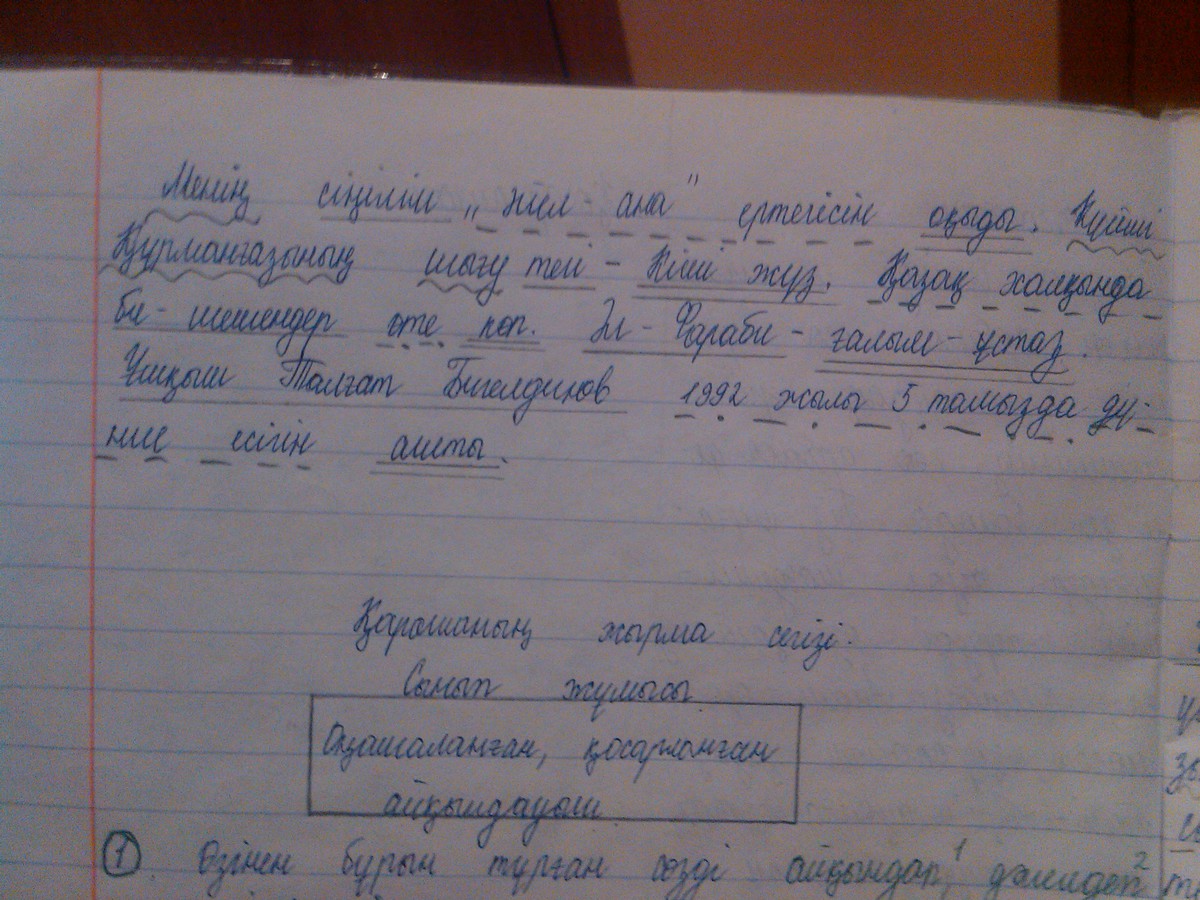 Менің сіңілім „Жел-ана" ертегісін оқыды. Күйші
Құрманғазының шығу тегі - Кіші жүз. Қазақ халқында
би-шешендер өте көп. Әл-Фараби - ғалым-ұстаз.
Ұшқыш Талғат Бигелдинов 1992 жылы 5 тамызда дү-
ние есігін ашты.
Қарашаның жырма сегізі.
Сынып жұмысы
Оқшаланған, қосарланған
айқындауыш.
1 Өзінен бұрын тұрған сөзді айқындап,¹ дәлелдеп²